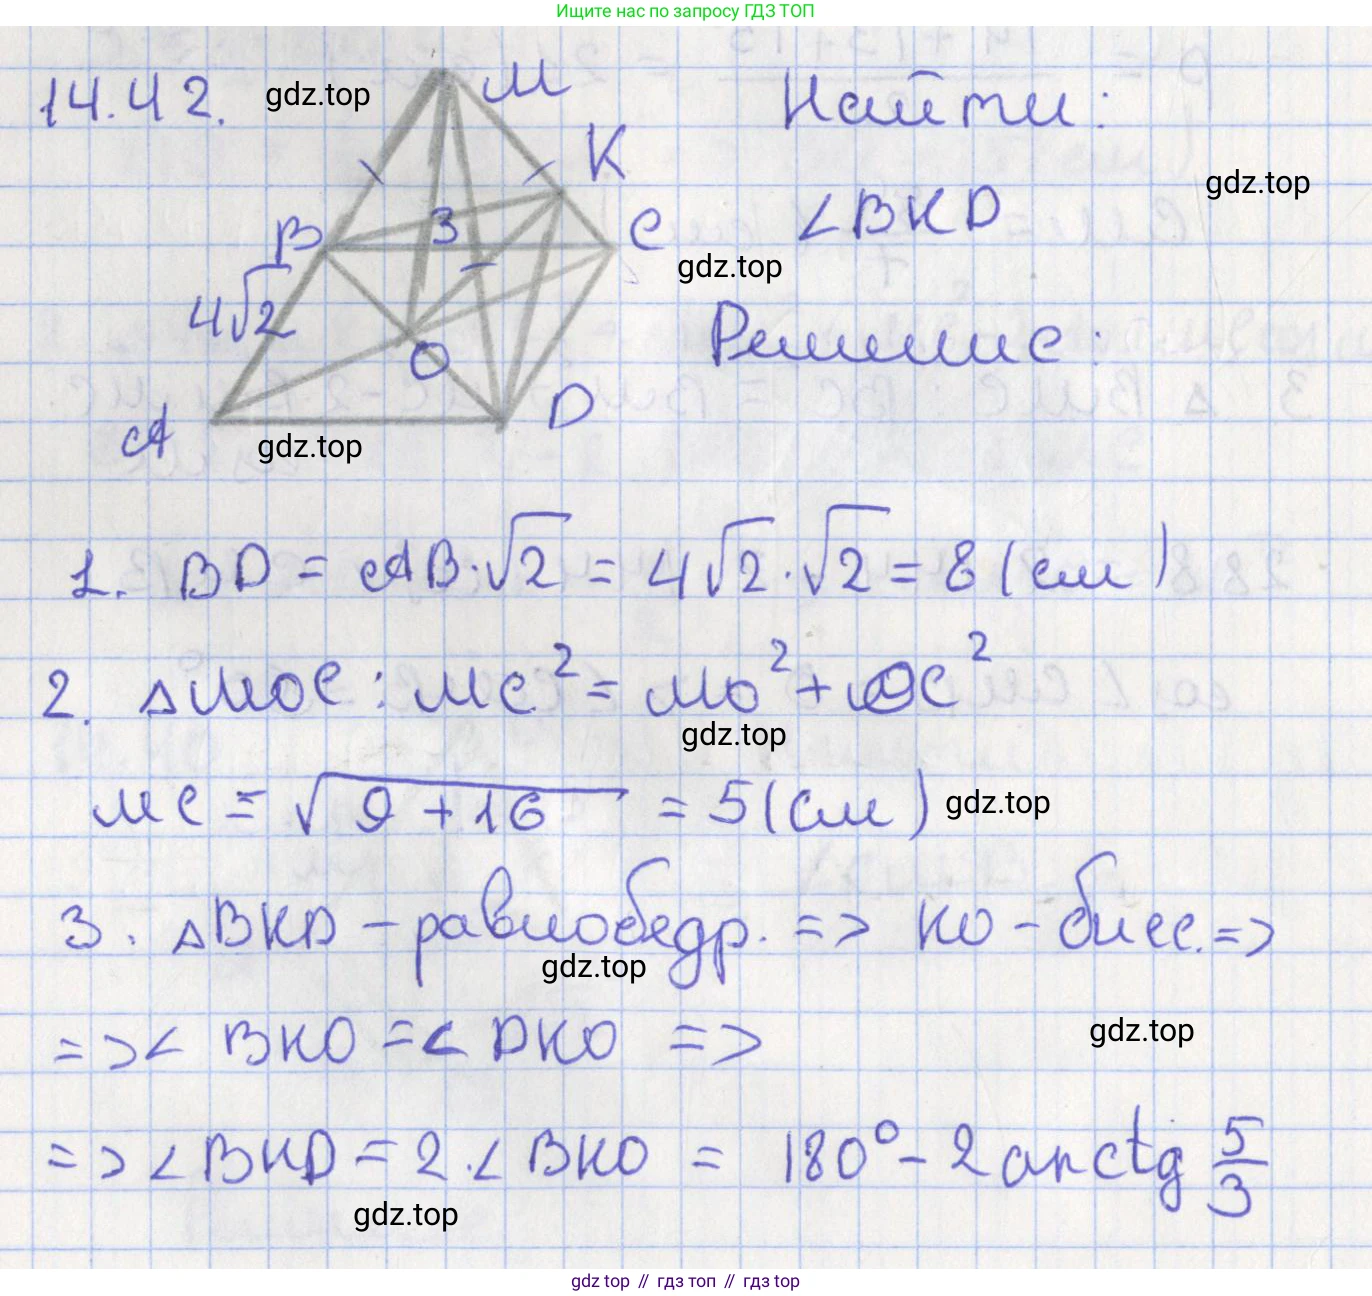 Ищите нас по запросу ГДЗ ТОП
14.42.
gdz.top
M
Найти:
K
gdz.top
∠BKD
B
3
C
gdz.top
4√2
Решение:
O
A
D
gdz.top
1. BD = AB·√2 = 4√2·√2 = 8 (см)
2. △MOC: MC² = MO² + OC²
gdz.top
MC = √9+16 = 5 (см)
gdz.top
3. △BKD – равнобедр. => KO – бисс. =>
gdz.top
=> ∠BKO = ∠DKO =>
gdz.top
=> ∠BKD = 2·∠BKO = 180° – 2 arctg 5/3
gdz.top
gdz top // гдз топ // гдз top